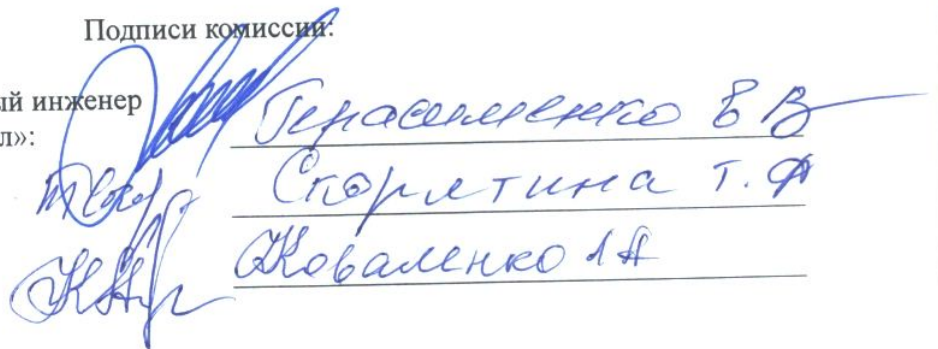 Подписи комиссии:
ый инженер
Герасименко Е В
л»:
Скорятина Т. А
Коваленко Л А